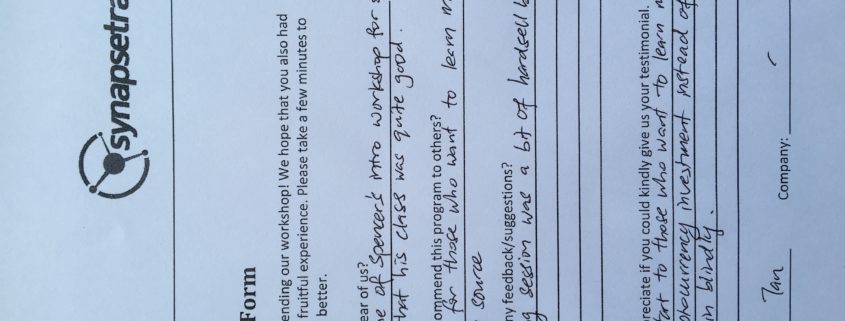 synapsetra
Form
ending our workshop! We hope that you also had
fruitful experience. Please take a few minutes to
better.
ear of us?
e of Spencer's intro workshop for
that his class was quite good.
ommend this program to others?
for those who want to learn m
source
ny feedback/suggestions?
g session was a bit of hardsell
reciate if you could kindly give us your testimonial.
to those who want to learn
ptocurrency investment instead of
in blindly.
Tan Company: